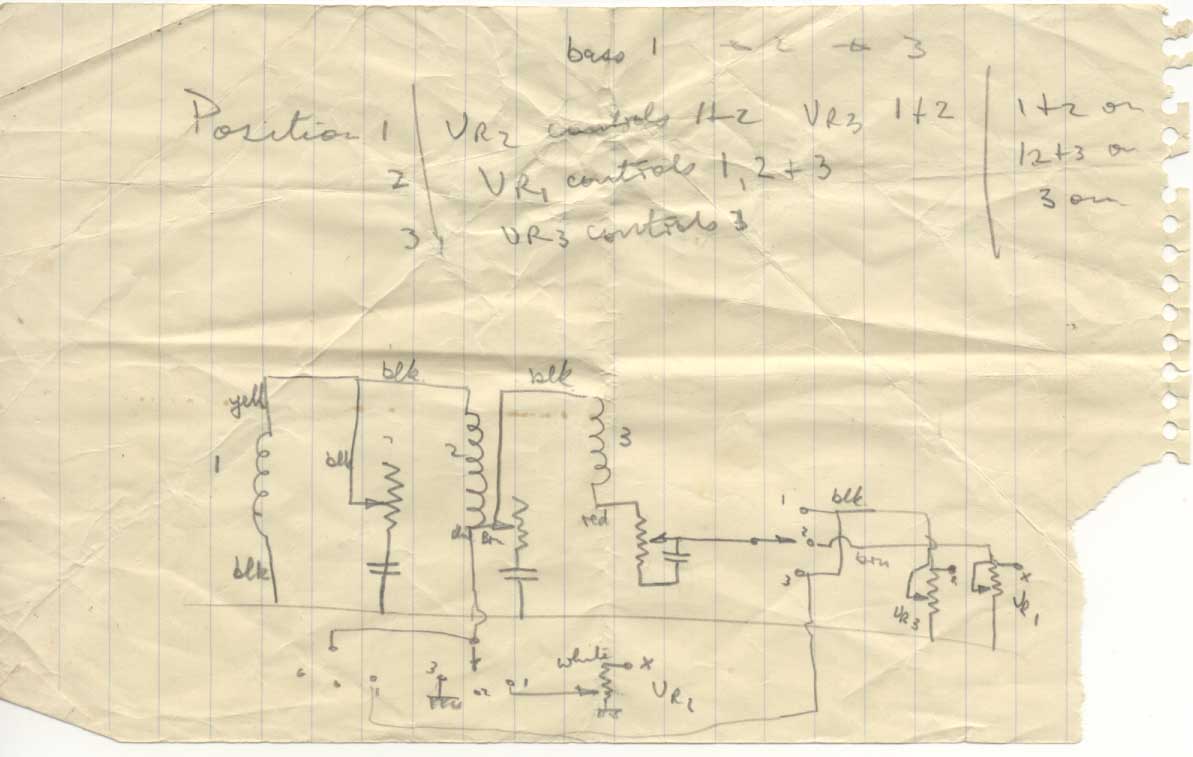 bass 1 2 3
Position 1 VR2 controls 1+2 VR3 1+2 1+2 on
2 VR1 controls 1, 2+3 12+3 on
3 VR3 controls 3 3 on
blk blk
yell
1 blk 2 3
red 1 blk
Brn 2
blk 3 brn
VR3 VR1 x
white x
3 2 1 VR2
1